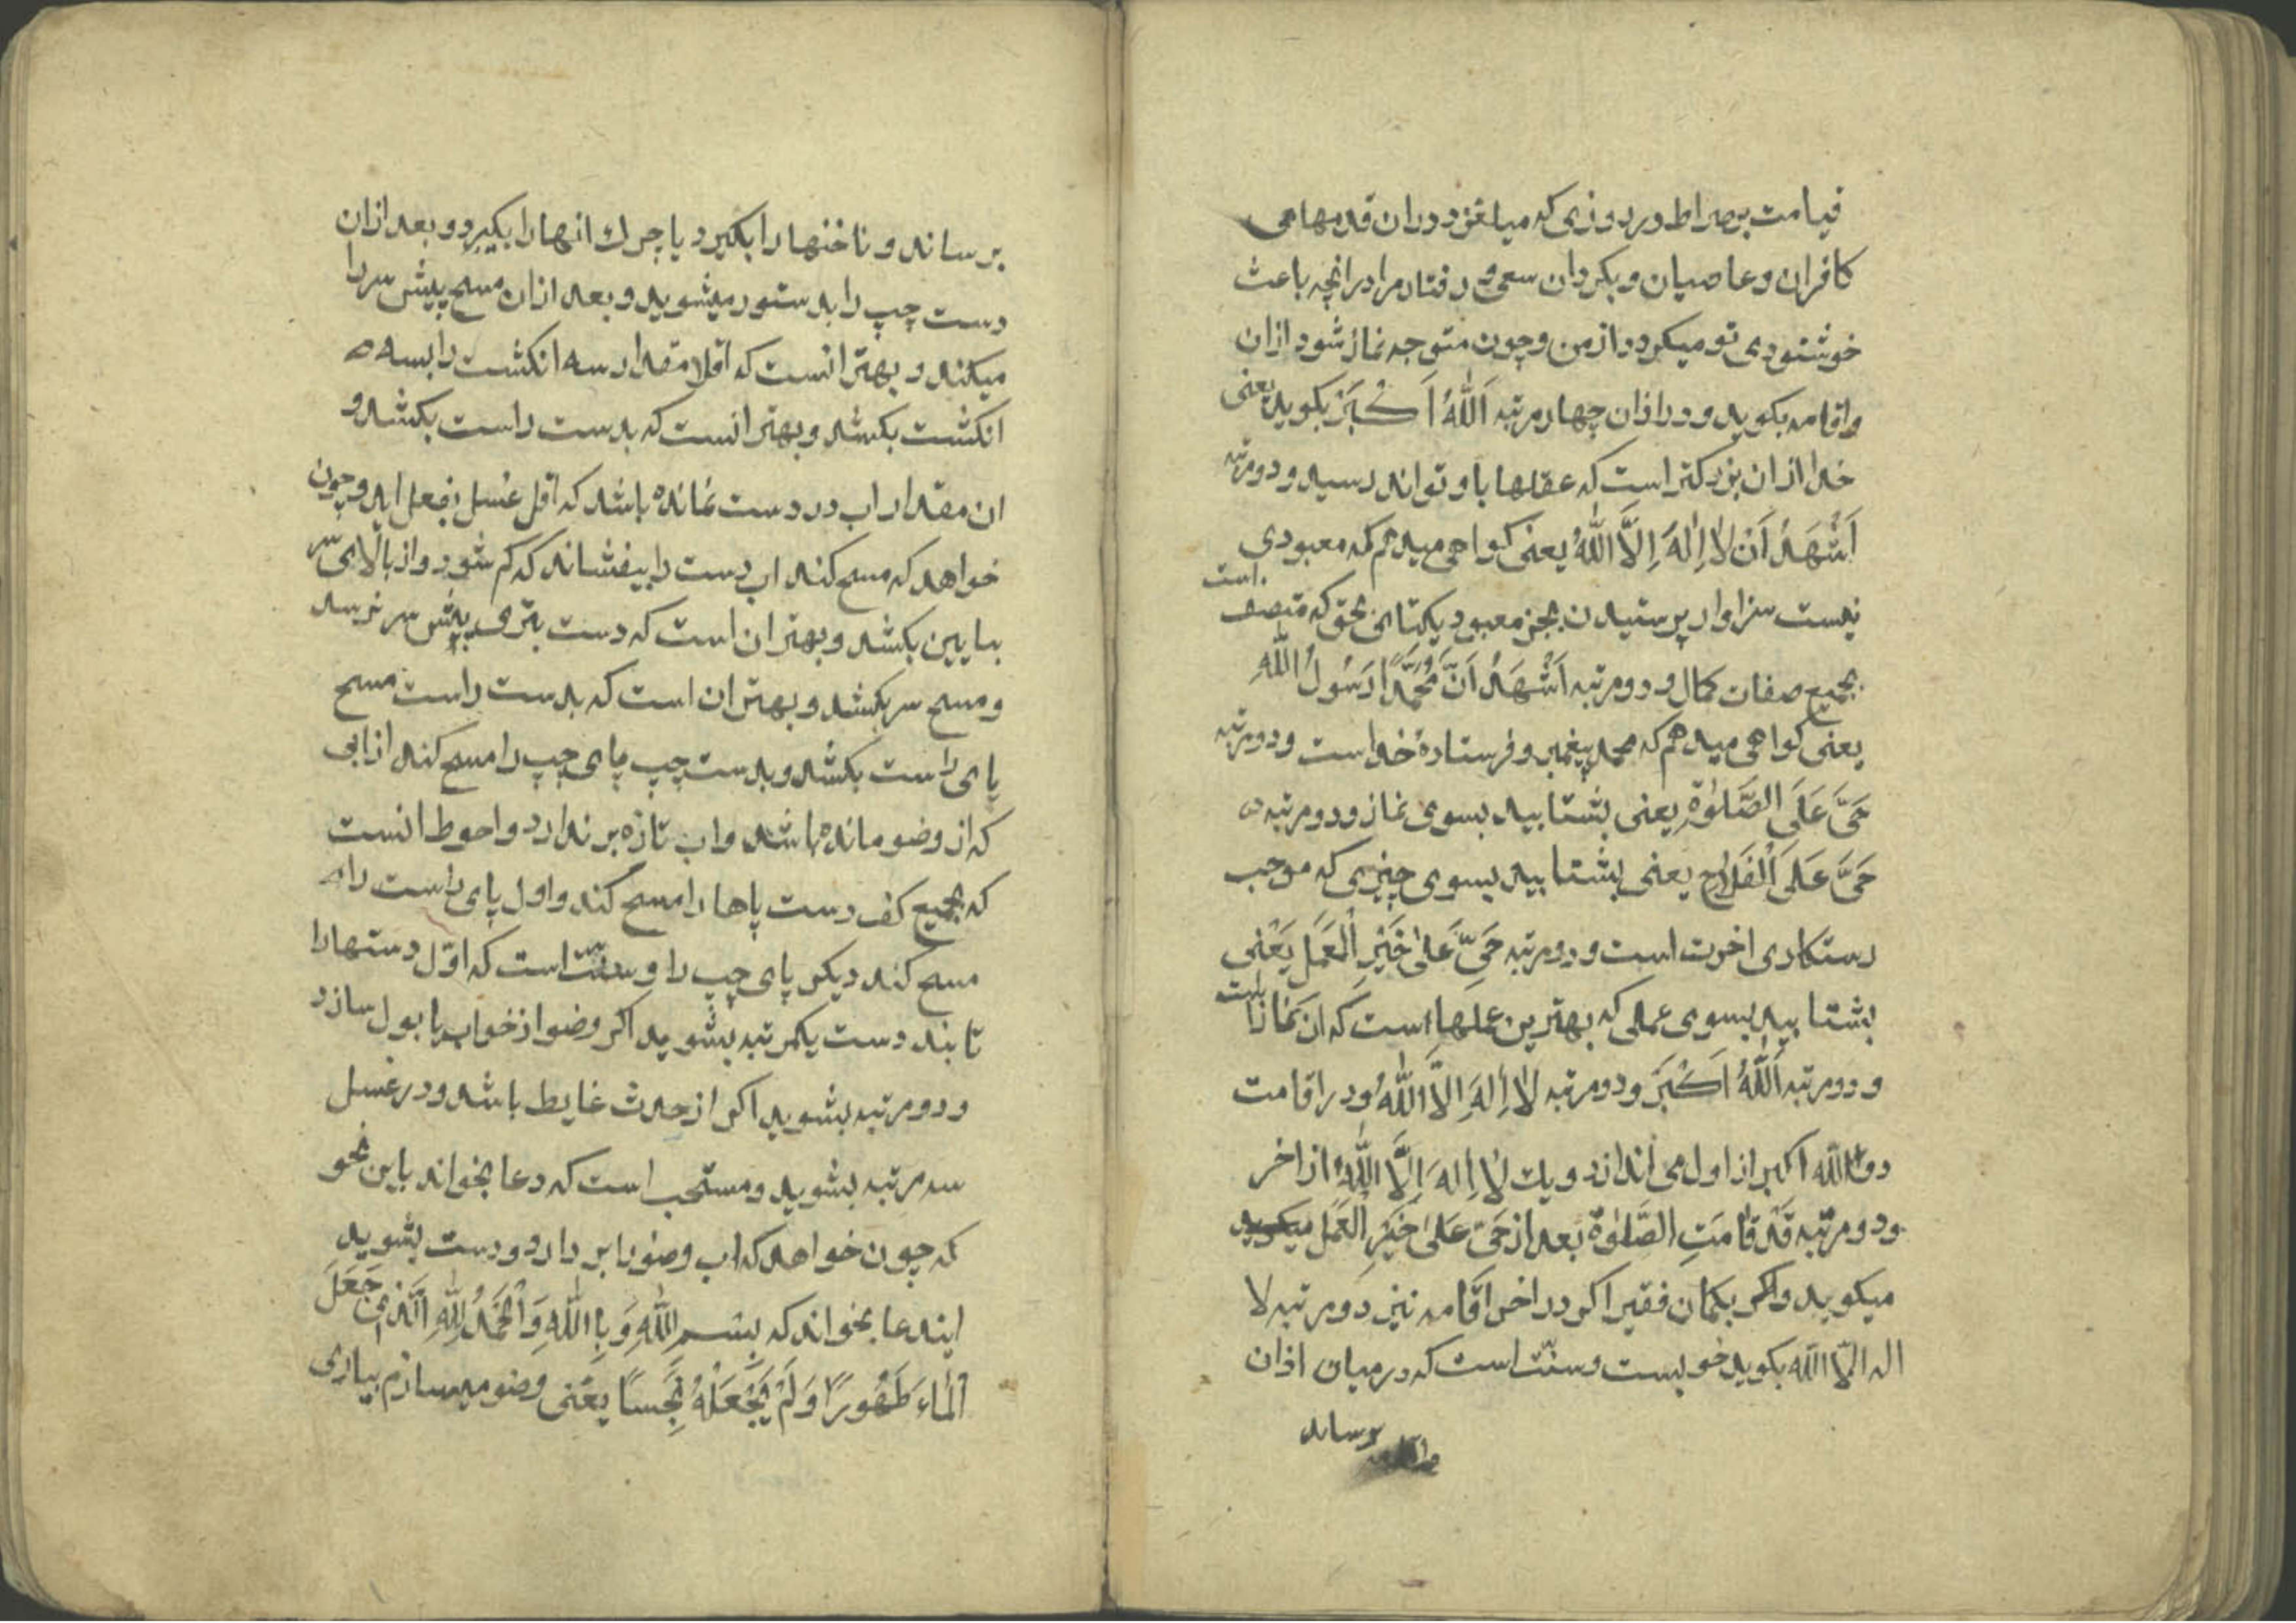 قیامت بر صراط در روزی که میلغزد دران قدمهامی
کافران و عاصیان و بکردان سعی و رفتار مرا درانچه باعث
خوشنودی تو میکردد از من و چون متوجه نماز شود اذان
واقامه بکوید و در اذان چهار مرتبه اَللّٰهُ اَکْبَرْ بکوید یعنی
خدا ازان بزرکتر است که عقلها باو تواند رسید و دو مرتبه
اَشْهَدُ اَنْ لا اِلٰهَ اِلَّا اللّٰهُ یعنی کواهی میدهم که معبودی
نیست سزاوار پرستیدن بجز معبود یکتای بحق که متصف است
بجمیع صفات کمال و دو مرتبه اَشْهَدُ اَنَّ مُحَمَّدًا رَسُولُ اللّٰهِ
یعنی کواهی میدهم که محمد پیغمبر و فرستادهٔ خداست و دو مرتبه
حَیَّ عَلَی الصَّلوٰةِ یعنی بشتابید بسوی نماز و دو مرتبه
حَیَّ عَلَی الْفَلاحِ یعنی بشتابید بسوی چیزی که موجب
رستکاری اخرت است و دو مرتبه حَیَّ عَلیٰ خَیْرِ الْعَمَلِ یَعْنی
بشتابید بسوی عملی که بهترین عملها است که ان نماز است
و دو مرتبه اَللّٰهُ اَکْبَرَ و دو مرتبه لا اِلهَ اِلاَّ اللّٰهُ و در اقامت
دو اللّه اکبر از اول می اندازد و یک لا اِلهَ اِلَّا اللّٰهُ از اخر
و دو مرتبه قَدْ قامَتِ الصَّلوٰةُ بعد از حَیَّ عَلیٰ خَیْرِ الْعَمَل میکوید
میکوید واکر بکمان فقیر اکر در اخر اقامه نیز دو مرتبه لا
اله الّا اللّه بکوید خوبست و سنّت است که در میان اذان
برساند
برساند و ناخنها را بکیرد یا چرك انها را بکیرد و بعد ازان
دست چپ را بدستور میشوید و بعد ازان مسح پیش سر را
میکند و بهتر انست که اقلا مقدار سه انکشت را بسه
انکشت بکشد و بهتر انست که بدست راست بکشد و
ان مقدار اب در دست نمانده باشد که اقل غسل بفعل اید و چون
خواهد که مسح کند اب دست را بیفشاند که کم شود و از بالای سر
بپایین بکشد و بهتر ان است که دست بتری پیش سر نرسد
و مسح سر بکشد و بهتر ان است که بدست راست مسح
پای راست بکشد و بدست چپ پای چپ را مسح کند از ابی
که از وضو مانده باشد و اب تازه برندارد و احوط انست
که بجمیع کف دست پاها را مسح کند و اول پای راست را
مسح کند دیکر پای چپ را و سنّت است که اوّل دستها را
تا بند دست یکمرتبه بشوید اکر وضو از خواب یا بول سازد
و دو مرتبه بشوید اکر از حدث غایط باشد و در غسل
سه مرتبه بشوید و مستحب است که دعا بخواند باین نحو
که چون خواهد که اب وضو را بردارد و دست بشوید
ایندعا بخواند که بِسْمِ اللّٰهِ وَ بِاللّٰهِ وَ الْحَمْدُ لِلّٰهِ الَّذی جَعَلَ
الْمٰاءَ طَهُورًا وَ لَمْ یَجْعَلْهُ نَجِسًا یَعْنی وضو میسازم بیاری